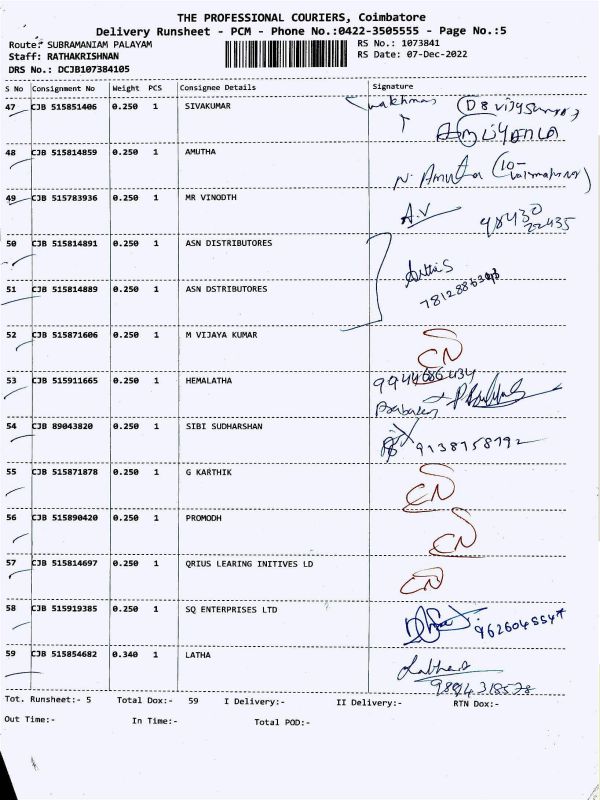 THE PROFESSIONAL COURIERS, Coimbatore
Delivery Runsheet - PCM - Phone No.:0422-3505555 - Page No.:5
Route: SUBRAMANIAM PALAYAM RS No.: 1073841
Staff: RATHAKRISHNAN RS Date: 07-Dec-2022
DRS No.: DCJB107384105
S No Consignment No Weight PCS Consignee Details Signature
47 CJB 515851406 0.250 1 SIVAKUMAR
48 CJB 515814859 0.250 1 AMUTHA N. Amutha
49 CJB 515783936 0.250 1 MR VINODTH A.V 98430
22435
50 CJB 515814891 0.250 1 ASN DISTRIBUTORES
51 CJB 515814889 0.250 1 ASN DSTRIBUTORES
52 CJB 515871606 0.250 1 M VIJAYA KUMAR CN
53 CJB 515911665 0.250 1 HEMALATHA 9944686434
54 CJB 89043820 0.250 1 SIBI SUDHARSHAN 9138758792
55 CJB 515871878 0.250 1 G KARTHIK CN
56 CJB 515890420 0.250 1 PROMODH CN
57 CJB 515814697 0.250 1 QRIUS LEARING INITIVES LD CN
58 CJB 515919385 0.250 1 SQ ENTERPRISES LTD
59 CJB 515854682 0.340 1 LATHA
Tot. Runsheet:- 5 Total Dox:- 59 I Delivery:- II Delivery:- RTN Dox:-
Out Time:- In Time:- Total POD:-